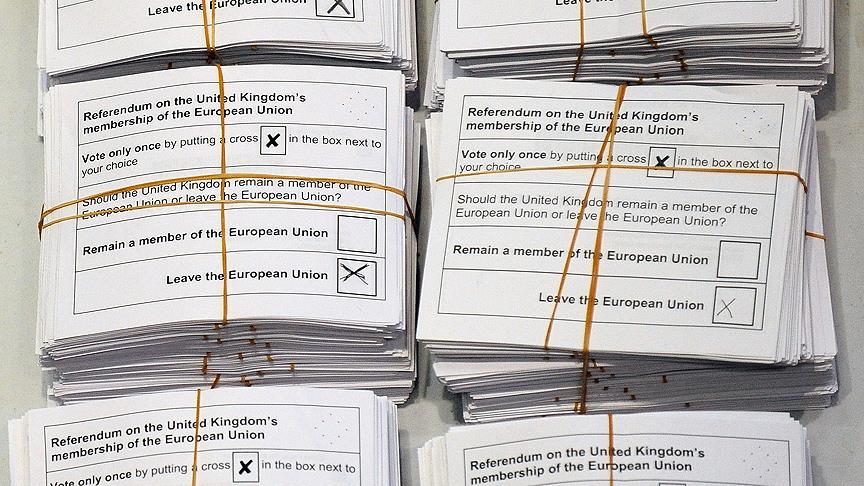 Leave the European Union
Leave the
Referendum on the United Kingdom's
membership of the European Union
Vote only once by putting a cross in the box next to
your choice
Should the United Kingdom remain a member of the
European Union or leave the European Union?
Remain a member of the European Union
Leave the European Union
Referendum on the United Kingdom's
membership of the European Union
Vote only once by putting a cross in the box next to
your choice
Should the United Kingdom remain a member of the
European Union or leave the European Union?
Remain a member of the European Union
Leave the European Union
Referendum on the United Kingdom's
membership of the European Union
Vote only once by putting a cross in the box next to
Referendum on the United Kingdom's
membership of the European Union